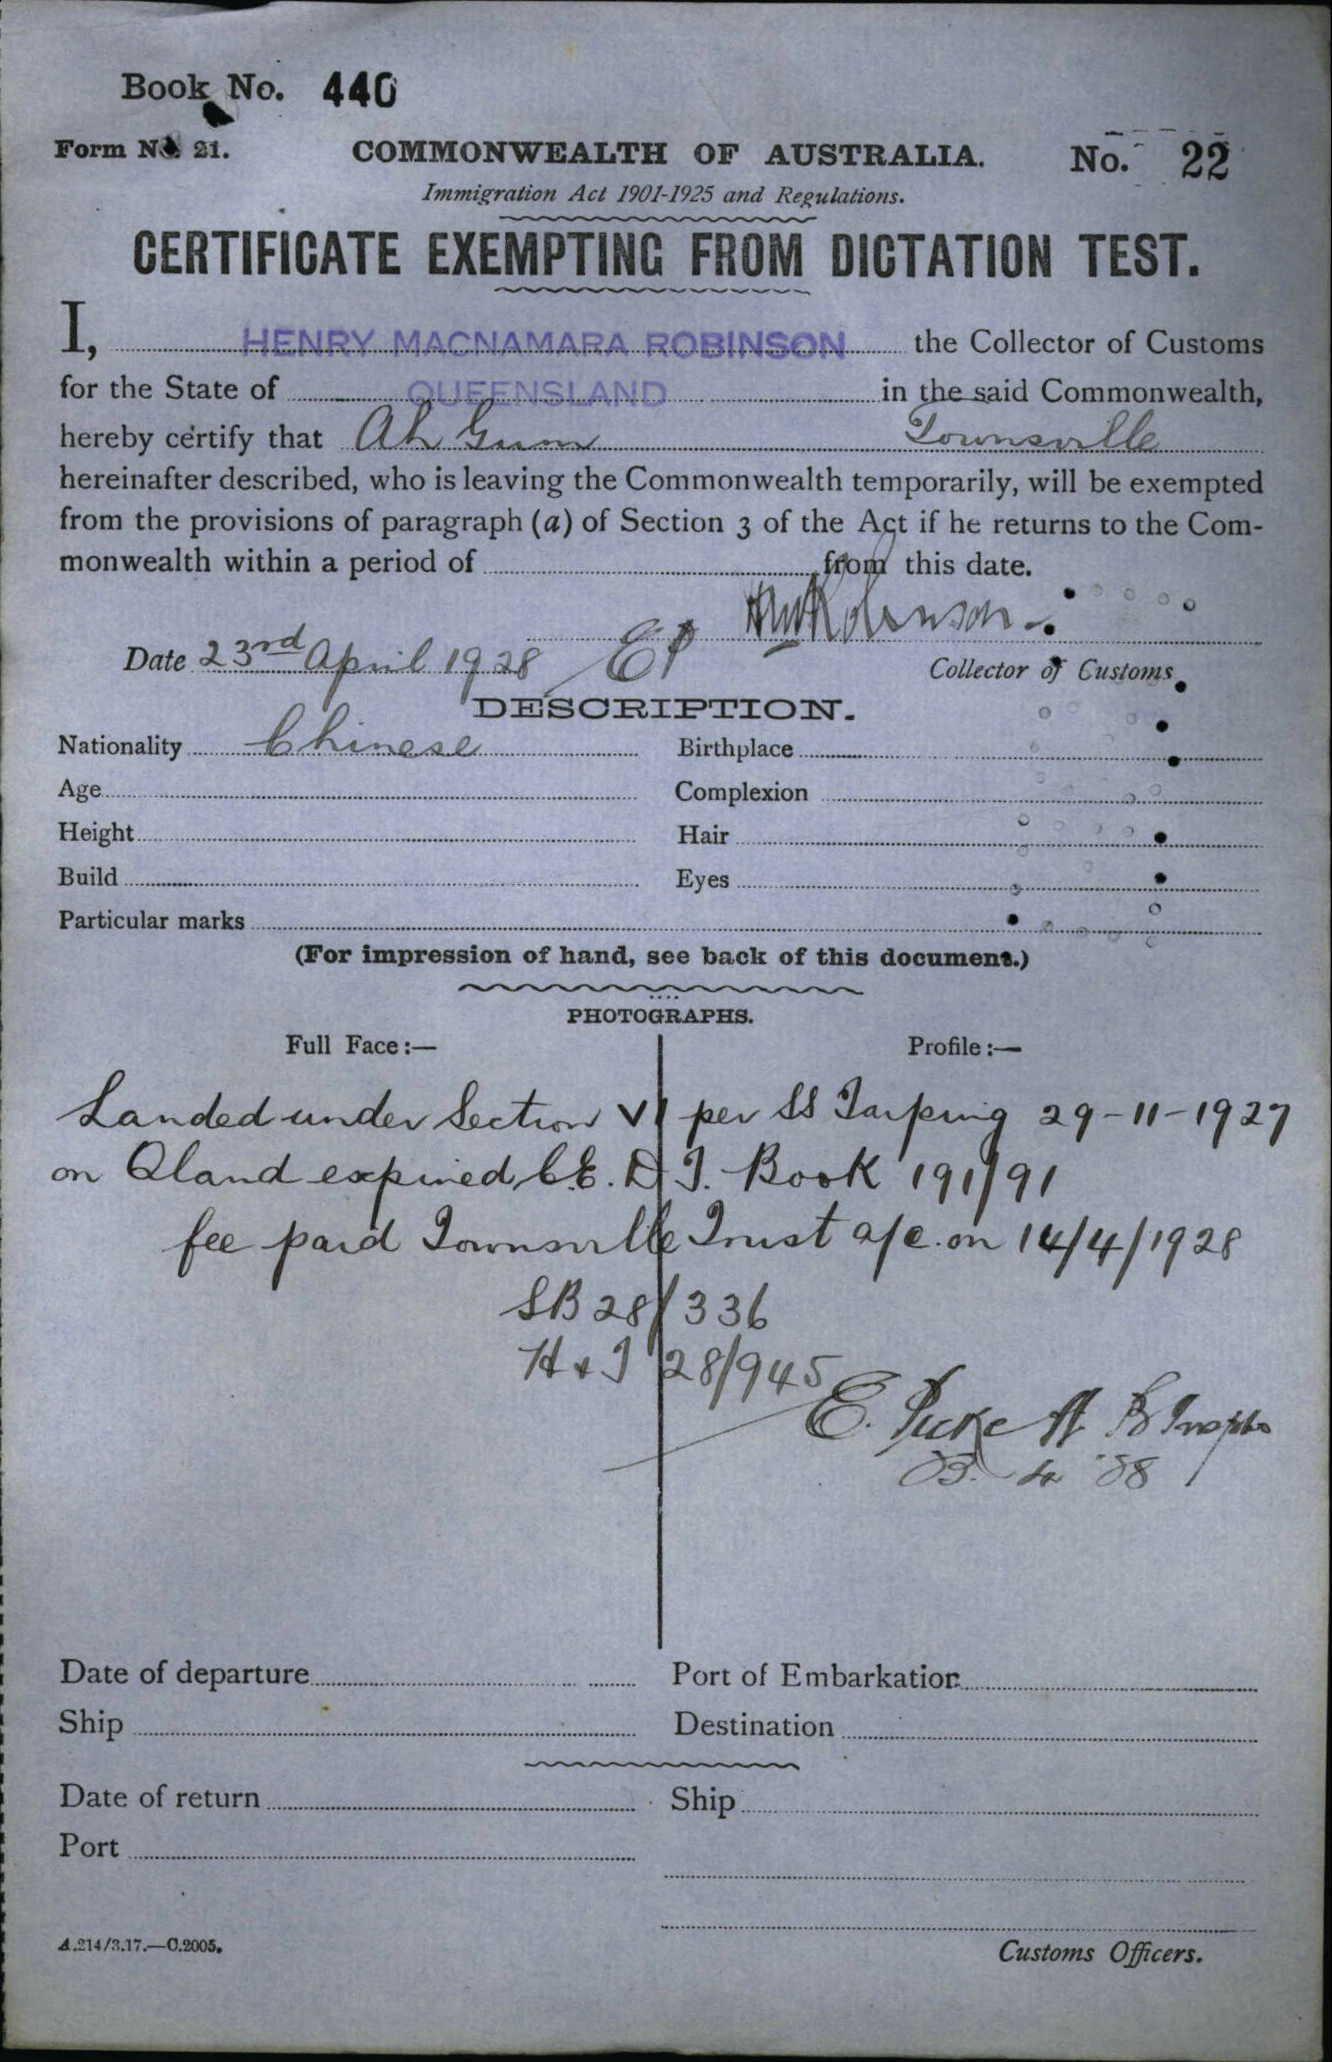 Book No. 440
Form No. 21.
COMMONWEALTH OF AUSTRALIA.
No. 22
Immigration Act 1901-1925 and Regulations.
CERTIFICATE EXEMPTING FROM DICTATION TEST.
I, HENRY MACNAMARA ROBINSON the Collector of Customs
for the State of QUEENSLAND in the said Commonwealth,
hereby certify that Ah Gum Townsville
hereinafter described, who is leaving the Commonwealth temporarily, will be exempted
from the provisions of paragraph (a) of Section 3 of the Act if he returns to the Com-
monwealth within a period of from this date.
HMRobinson
Date 23rd April 1928 EP
Collector of Customs.
DESCRIPTION.
Nationality Chinese Birthplace
Age Complexion
Height Hair
Build Eyes
Particular marks
(For impression of hand, see back of this document.)
PHOTOGRAPHS.
Full Face:— Profile:—
Landed under Section VI per SS Taiping 29-11-1927
on Qland expired C.E.D.T. Book 191/91
fee paid Townsville Trust a/c. on 14/4/1928
SB 28/336
H & T 28/945
E. Pickett
Date of departure Port of Embarkation
Ship Destination
Date of return Ship
Port
A.214/3.17.—C.2005.
Customs Officers.